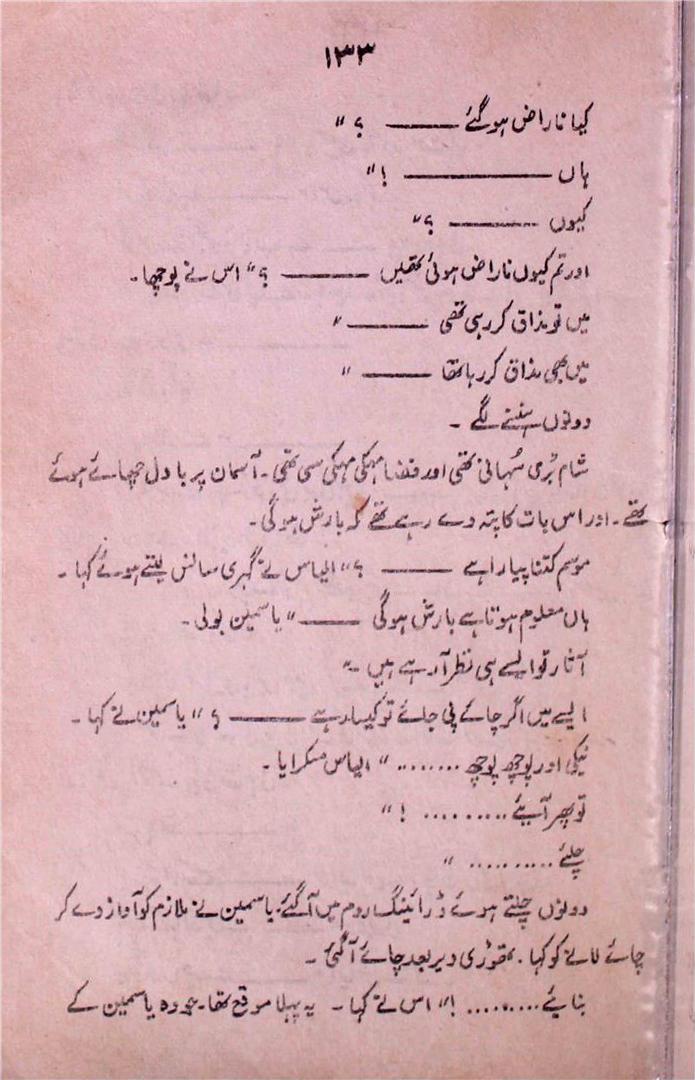 ۱۳۳
کیا ناراض ہو گئے ——— ؟ "
ہاں ——————— ! "
کیوں ———— ؟ "
اور تم کیوں ناراض ہوئی تھیں ———— ؟ " اس نے پوچھا۔
میں تو مذاق کر رہی تھی ———— "
میں بھی مذاق کر رہا تھا ——— "
دونوں ہنسنے لگے ۔
شام بڑی سُہانی تھی اور فضا مہکی مہکی سی تھی۔ آسمان پر بادل چھائے ہوئے
تھے ۔ اور اس بات کا پتہ دے رہے تھے کہ بارش ہوگی۔
موسم کتنا پیارا ہے ——— ؟ " الیاس نے گہری سانس لیتے ہوئے کہا ۔
ہاں معلوم ہوتا ہے بارش ہوگی ——— " یاسمین بولی ۔
آثار تو ایسے ہی نظر آ رہے ہیں ۔"
ایسے میں اگر چائے پی جائے تو کیسا رہے ———— ؟ " یاسمین نے کہا ۔
نیکی اور پوچھ پوچھ ........ " الیاس مسکرایا ۔
تو پھر آیئے ......... ! "
چلئے .......... "
دونوں چلتے ہوئے ڈرائینگ روم میں آ گئے۔ یاسمین نے ملازم کو آواز دے کر
چائے لانے کو کہا ۔ تھوڑی دیر بعد چائے آ گئی ۔
بنایئے ......... ! " اس نے کہا ۔ یہ پہلا موقع تھا۔ جو وہ یاسمین کے